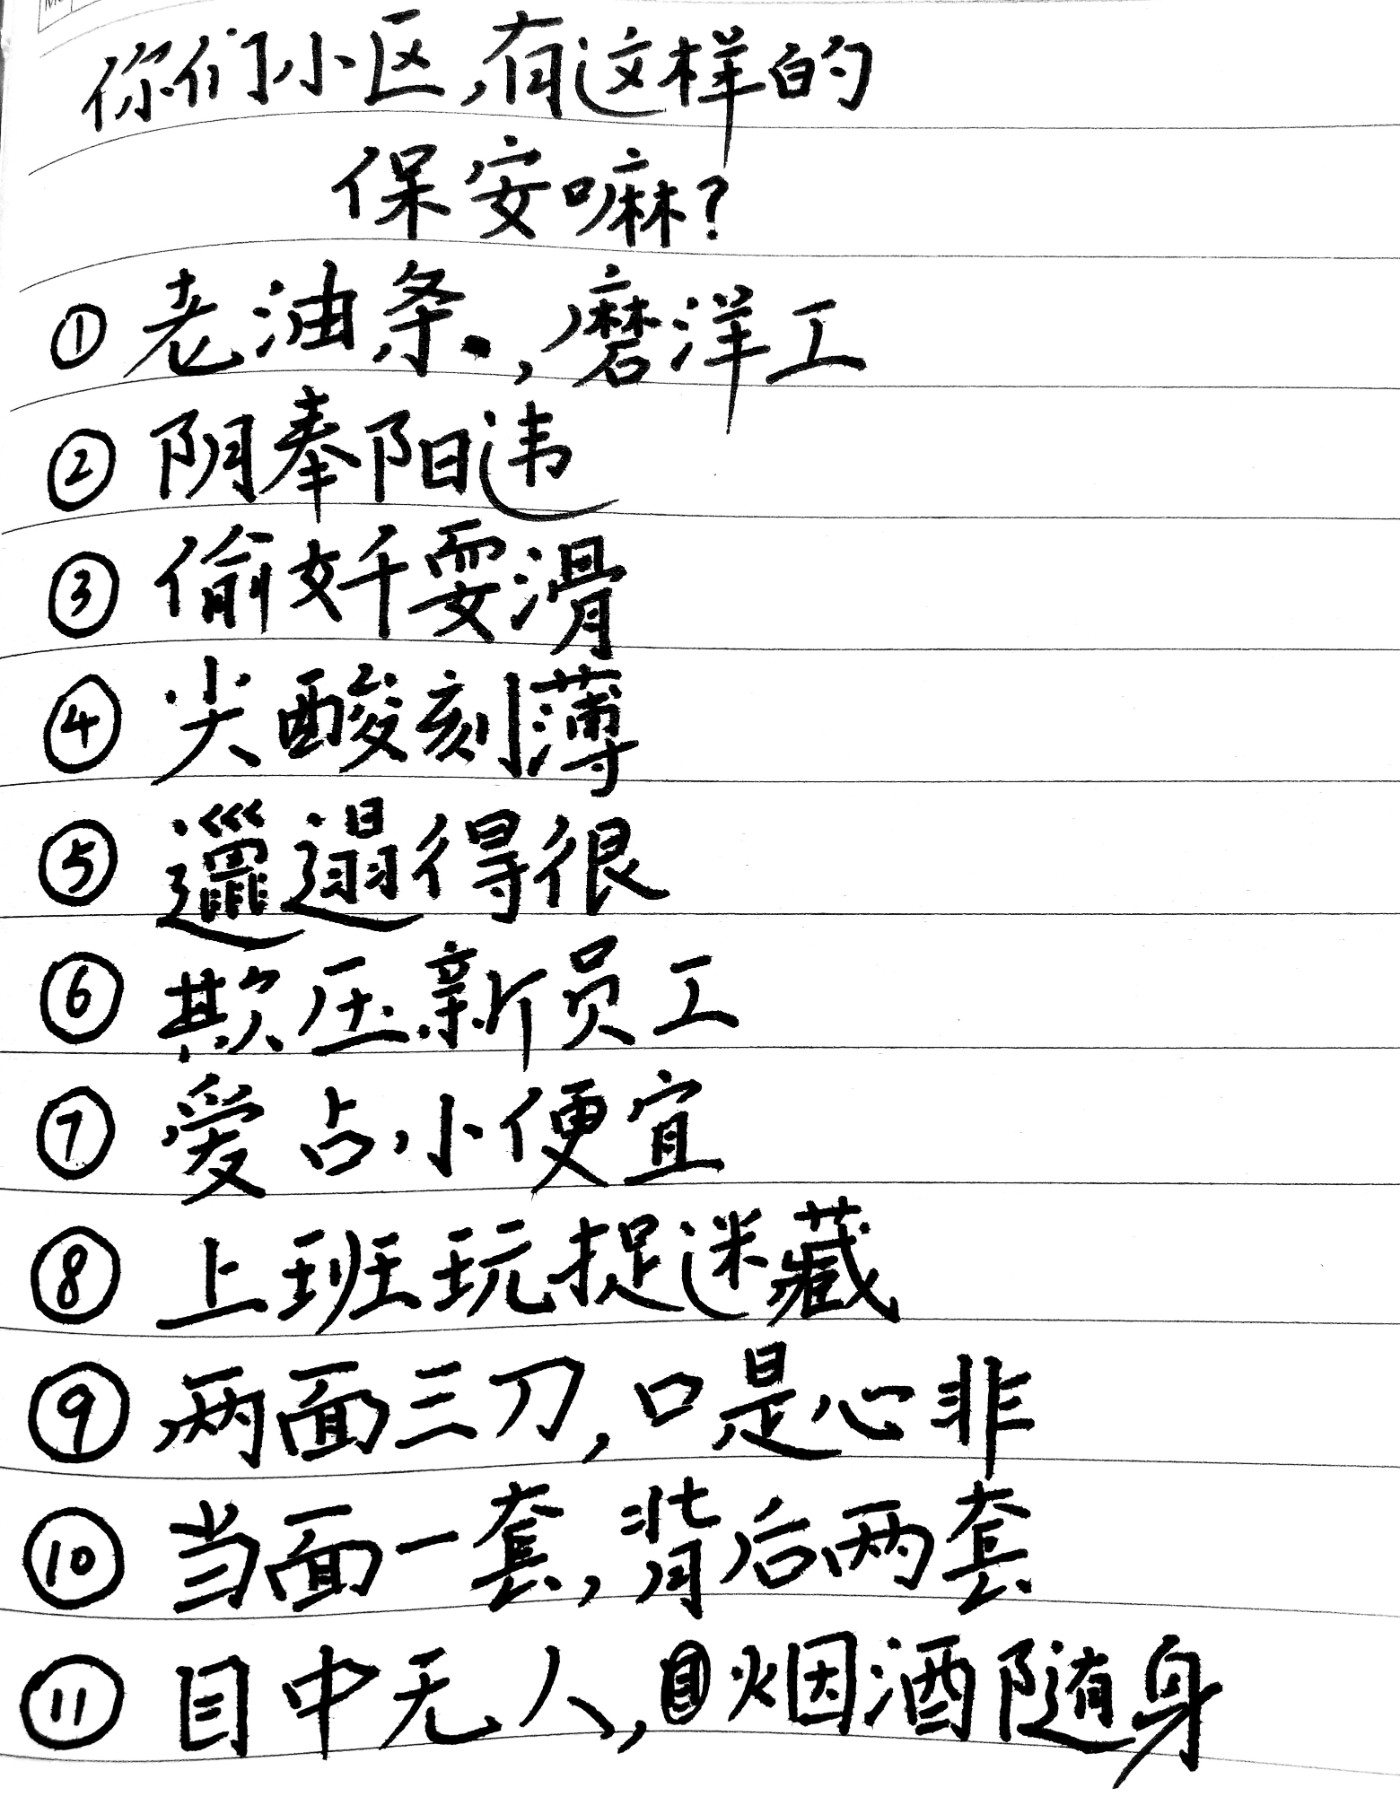 你们小区,有这样的
保安嘛?
① 老油条,磨洋工
② 阴奉阳违
③ 偷奸耍滑
④ 尖酸刻薄
⑤ 邋遢得很
⑥ 欺压新员工
⑦ 爱占小便宜
⑧ 上班玩捉迷藏
⑨ 两面三刀,口是心非
⑩ 当面一套,背后两套
⑪ 目中无人,烟酒随身